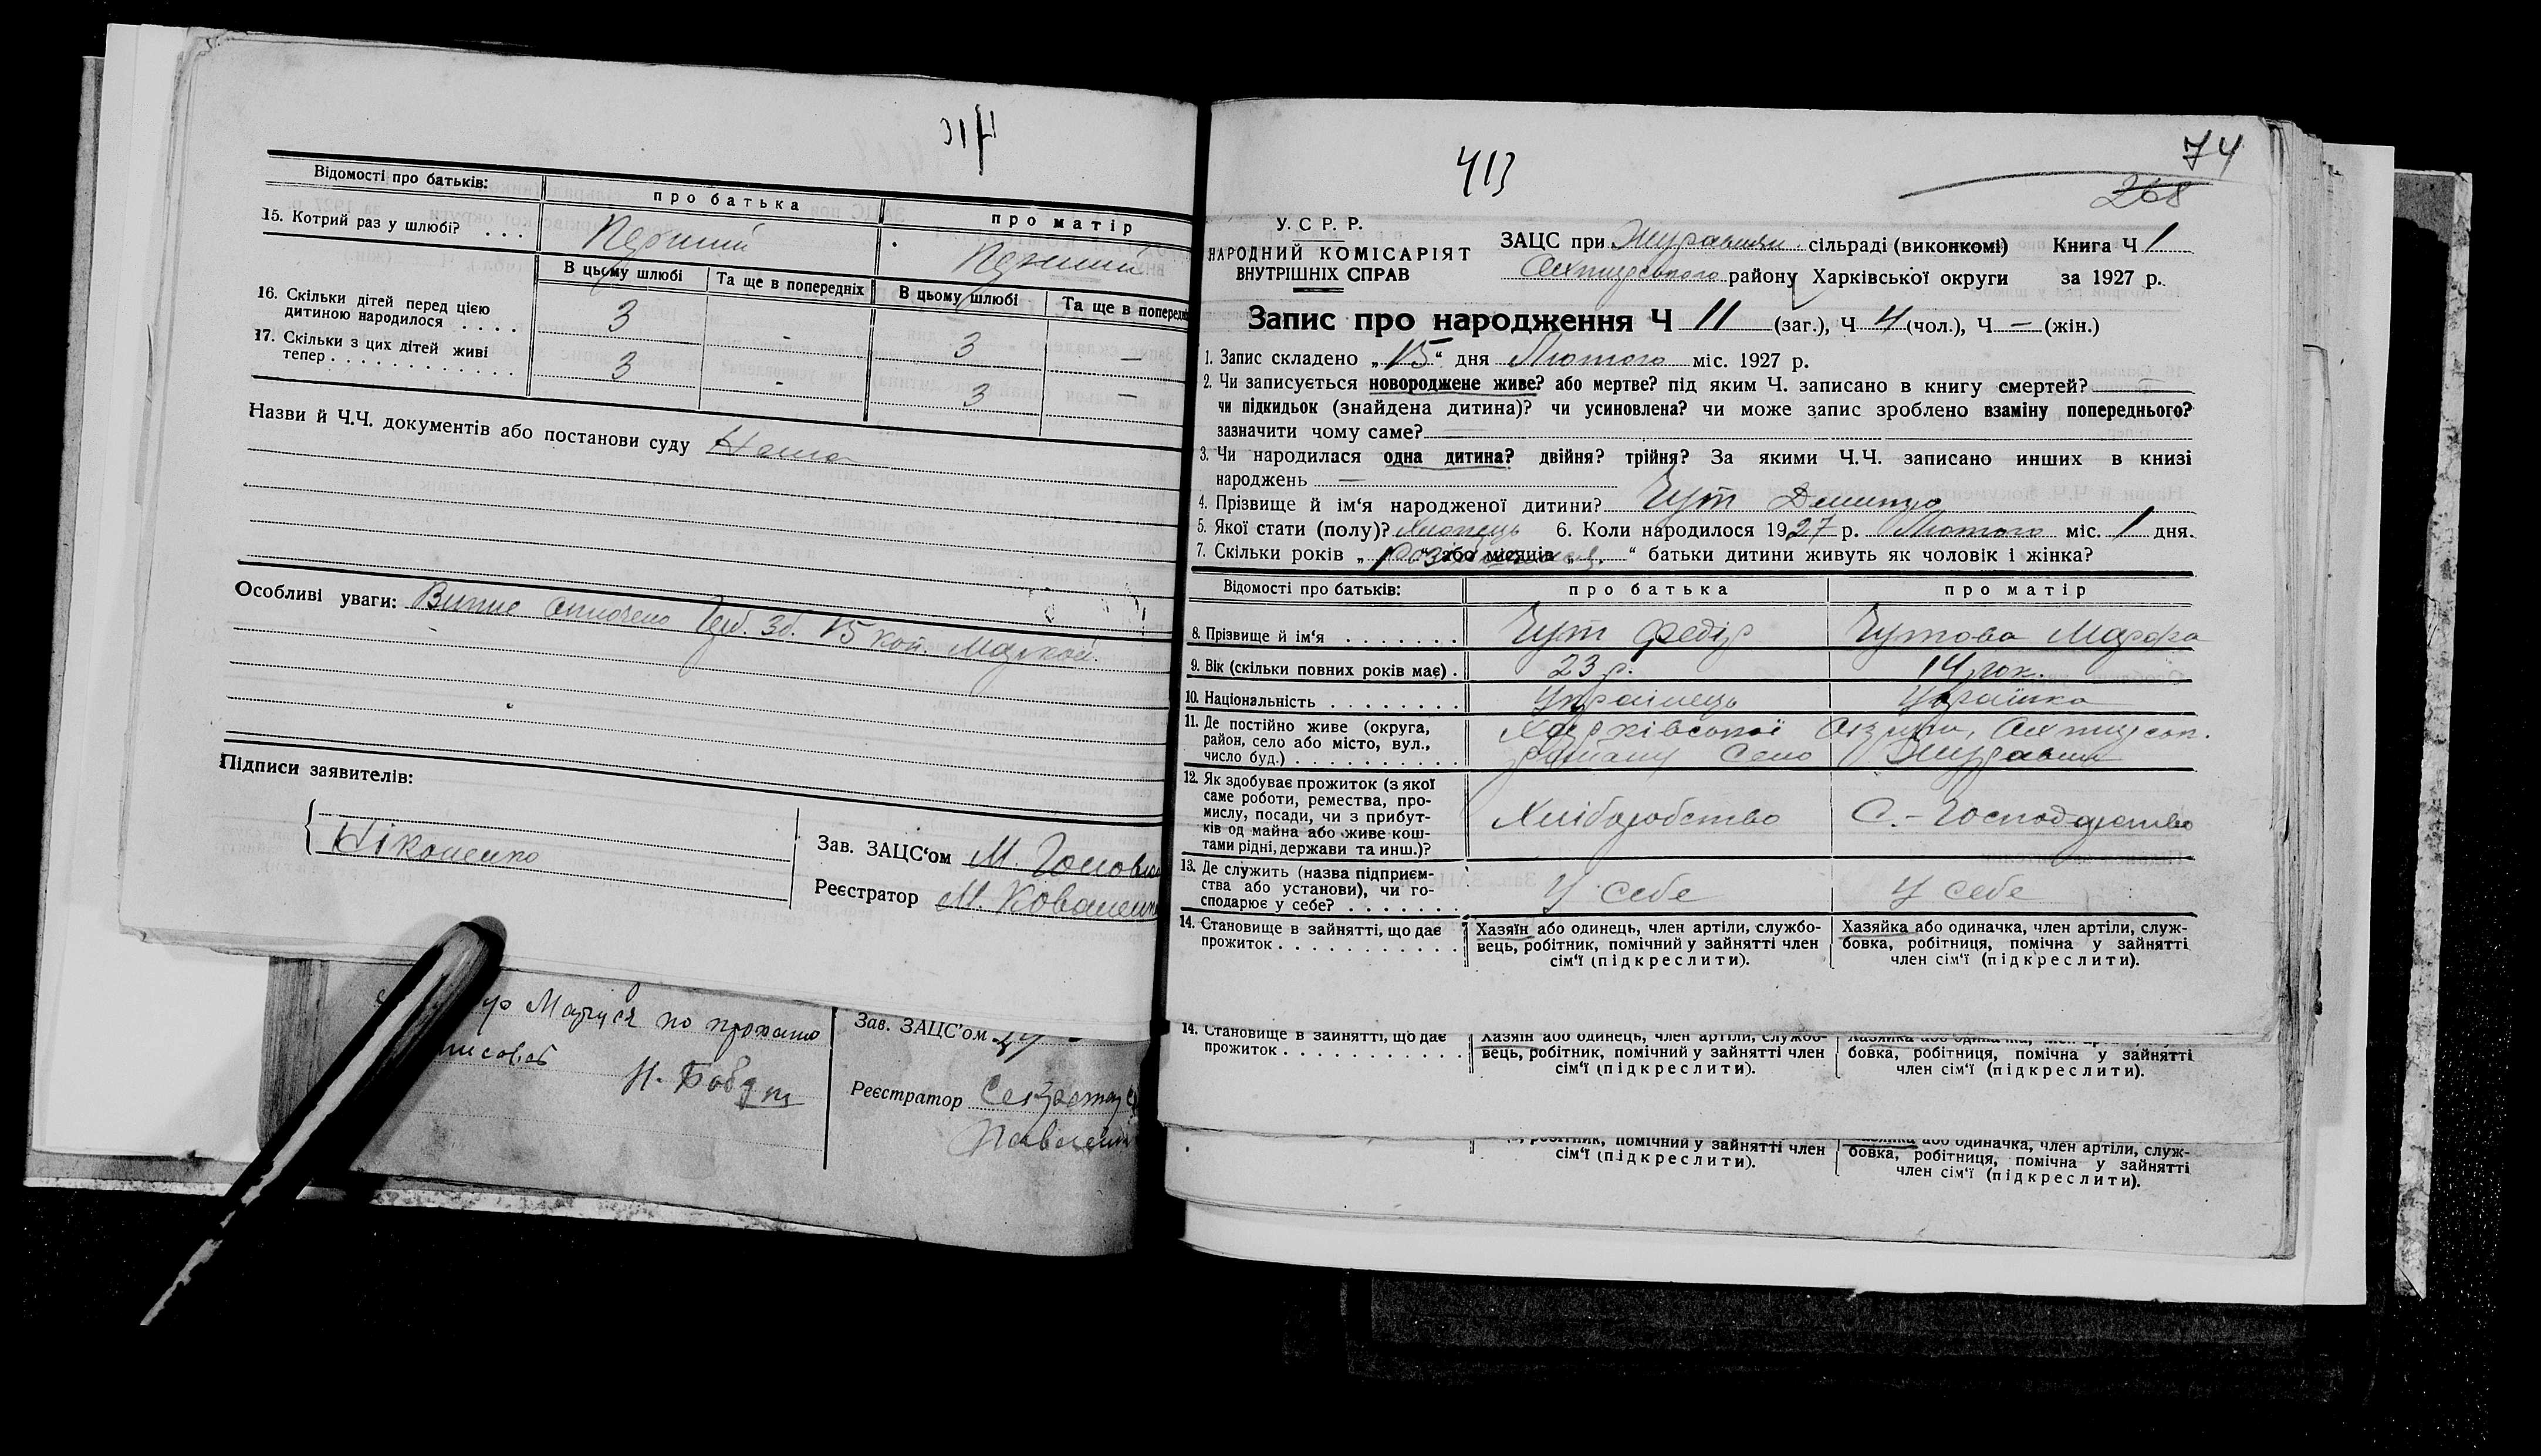 314
Відомості про батьків: про батька про матір
15. Котрий раз у шлюбі? . . . Перший Перший
В цьому шлюбі Та ще в попередніх В цьому шлюбі Та ще в попередніх
16. Скільки дітей перед цією
дитиною народилося . . . . 3 - 3 —
17. Скільки з цих дітей живі
тепер . . . . . . . . . . . . 3 - 3 —
Назви й Ч.Ч. документів або постанови суду Нема
Особливі уваги: Випис оплочено Герб. Зб. 15 коп. маркой.
Підписи заявителів:
Ніконенко
Зав. ЗАЦС‘ом М.
Реєстратор М. Коваленко
Маруся по
Н.
Зав. ЗАЦС’ом
Реєстратор Секретар
413
74
268
У. С. Р. Р.
НАРОДНИЙ КОМІСАРІЯТ
ВНУТРІШНІХ СПРАВ
ЗАЦС при Журавлян. сільраді (виконкомі) Книга Ч 1
Охтирського району Харківської округи за 1927 р.
Запис про народження Ч 11 (заг.), Ч 4 (чол.), Ч — (жін.)
1. Запис складено „ 15 “ дня Лютого міс. 1927 р.
2. Чи записується новороджене живе? або мертве? під яким Ч. записано в книгу смертей?
чи підкидьок (знайдена дитина)? чи усиновлена? чи може запис зроблено взаміну попереднього?
зазначити чому саме? —
3. Чи народилася одна дитина? двійня? трійня? За якими Ч.Ч. записано инших в книзі
народжень —
4. Прізвище й ім‘я народженої дитини? Гут Дмитро
5. Якої стати (полу)? Хлопець 6. Коли народилося 1927 р. Лютого міс. 1 дня.
7. Скільки років „ “ або місяців „ “ батьки дитини живуть як чоловік і жінка?
Відомості про батьків: про батька про матір
8. Прізвище й ім‘я . . . . . . . Гут Федір Гутова Марфа
9. Вік (скільки повних років має) . 23 р.
10. Національність . . . . . . . . Українець Українка
11. Де постійно живе (округа,
район, село або місто, вул.,
число буд.) . . . . . . . . . .
Харківської Округи, Охтирськ.
району Село Журавне
12. Як здобуває прожиток (з якої
саме роботи, ремества, про-
мислу, посади, чи з прибут-
ків од майна або живе кош-
тами рідні, держави та инш.)?
Хліборобство С.-Господарство
13. Де служить (назва підприєм-
ства або установи), чи го-
сподарює у себе? . . . . . . .
У себе У себе
14. Становище в зайнятті, що дає
прожиток . . . . . . . . . . .
Хазяїн або одинець, член артіли, службо-
вець, робітник, помічний у зайнятті член
сім‘ї (підкреслити).
Хазяйка або одиначка, член артіли, служ-
бовка, робітниця, помічна у зайнятті
член сім‘ї (підкреслити).
14. Становище в зайнятті, що дає
прожиток . . . . . . . . . . .
Хазяїн або одинець, член артіли, службо-
вець, робітник, помічний у зайнятті член
сім‘ї (підкреслити).
бовка, робітниця, помічна у зайнятті
член сім‘ї (підкреслити).
робітник, помічний у зайнятті член
сім‘ї (підкреслити).
Хазяйка або одиначка, член артіли, служ-
бовка, робітниця, помічна у зайнятті
член сім‘ї (підкреслити).